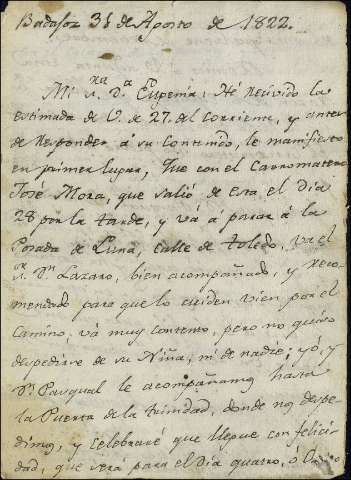 Badajoz 31 de Agosto de 1822.
Mi Sra. Da. Eugenia: Hé recivido la
estimada de V. de 27. del corriente, y antes
de responder á su contenido, le manifiesto
en primer lugar, que con el Carromatero
José Mora, que salió de esta el Dia
28 por la tarde, y vá a parar á la
Posada de Luna, calle de Toledo, va el
Sr. Dn. Lazaro, bien acompañado, y reco-
mendado para que lo cuiden vien por el
Camino, vá muy contento, pero no quiso
despedirse de su Niña, ni de nadie; yó, y
Dn. Pasqual le acompañamos hasta
la Puerta de la trinidad, donde nos despe-
dimos, y celebraré que llegue con felici-
dad, que será para el Dia quatro, ó